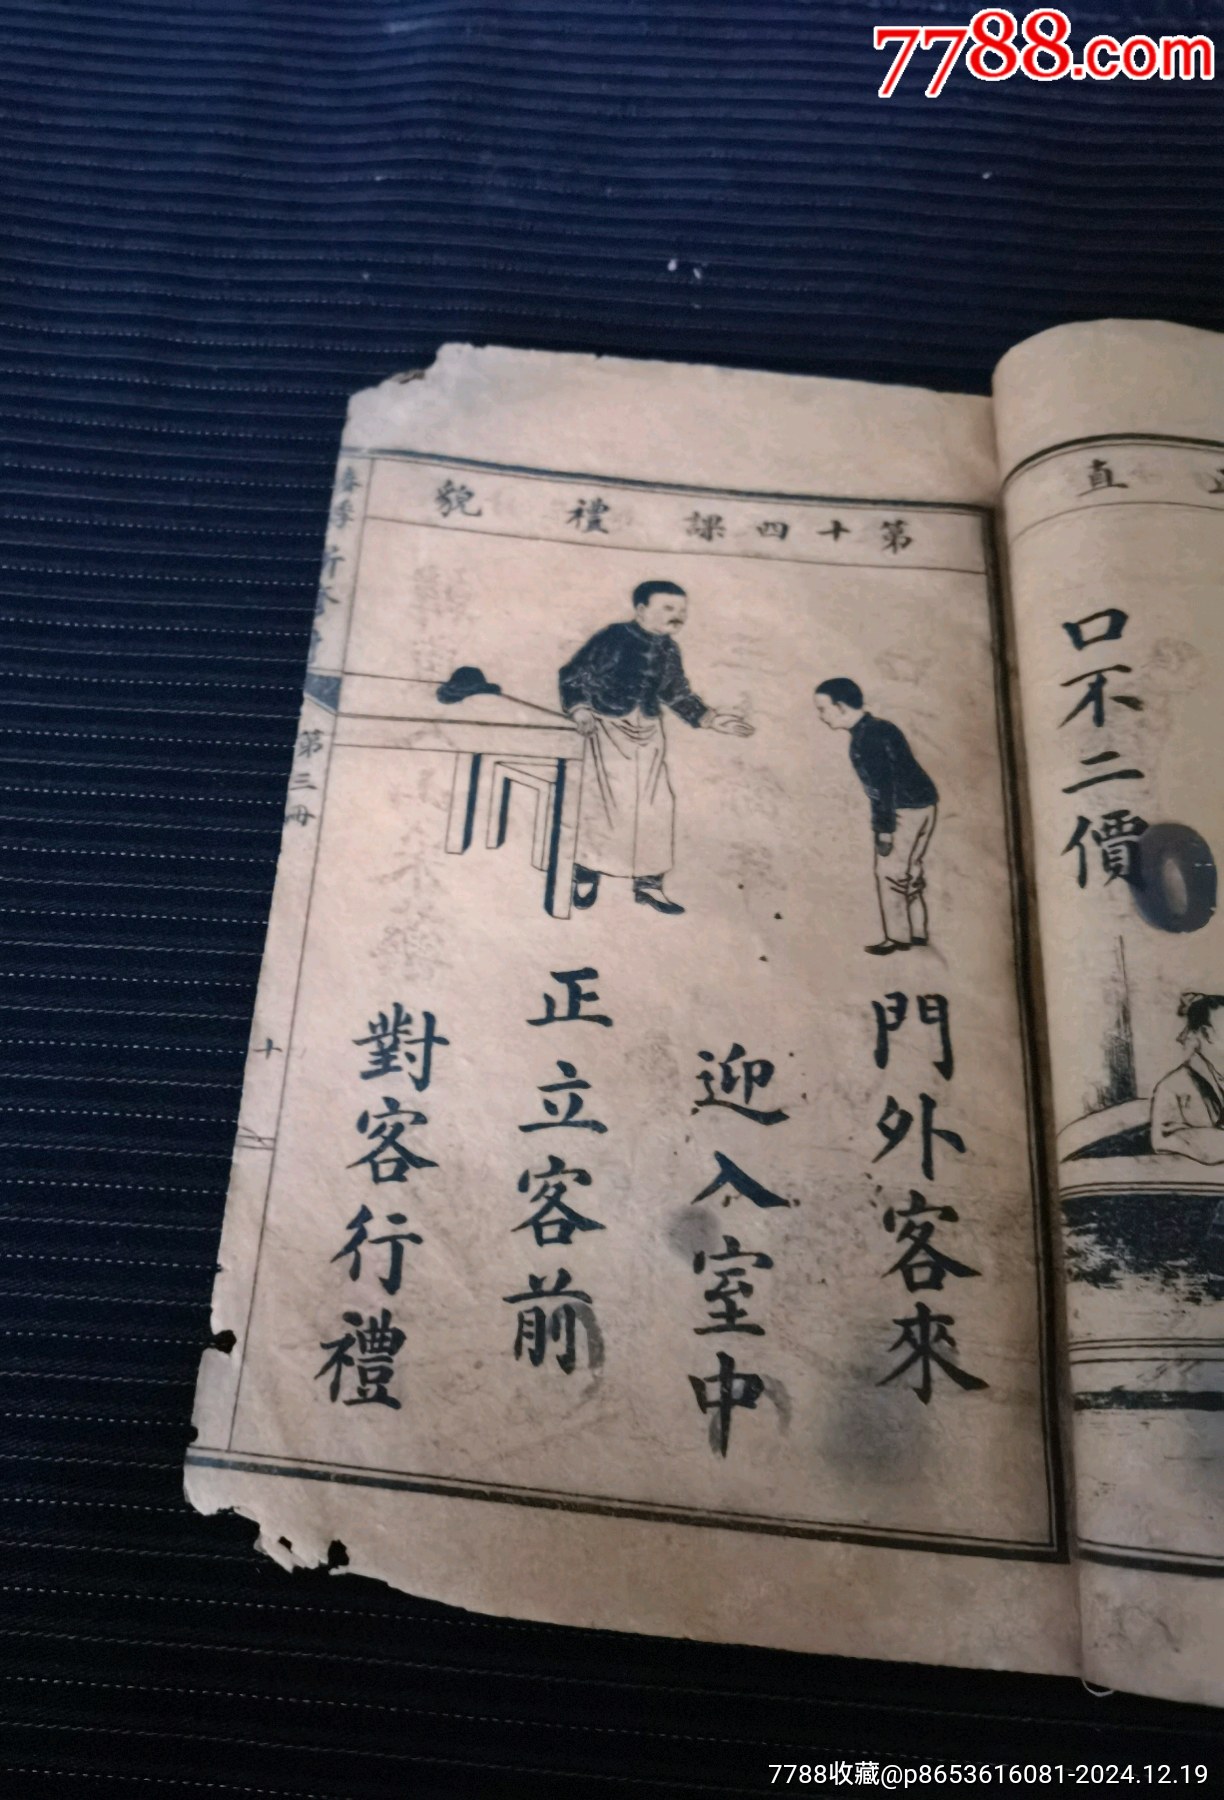 7788.com
直
口不二價
第十四課 禮貌
門外客來
迎入室中
正立客前
對客行禮
春季
第三冊
十
7788收藏@p8653616081-2024.12.19